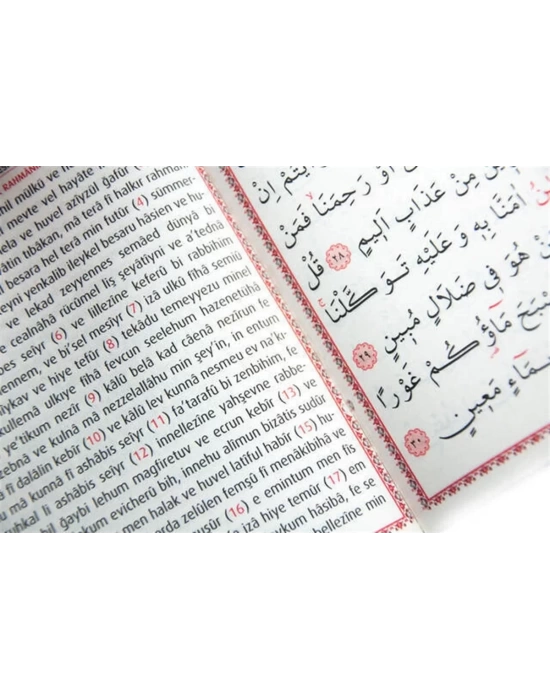 RAHMAN
mülkü ve
meyte vel hayâte
ve huvel azîyzul ğafûr
tıbâkan, mâ terâ fî halkır rahmâ
besara hel terâ min futûr (4) sümmer-
yenkalib ileykel besaru hâsien ve hu-
ve lekad zeyyennes semâed dünyâ bi
cealnâhâ rücûmel liş şeyâtiyni ve a'tednâ
bes seiyr (6) ve lillezîne keferû bi rabbihim
ennem, ve bi'sel mesiyr (7) izâ ulkû fîhâ semiû
ve hiye tefûr (8) tekâdu temeyyezu minel
kullemâ ulkıye fîhâ fevcun seelehum hazenetühâ
e'tikum nezîr (9) kâlû belâ kad câenâ nezîrun fe
zebnâ ve kulnâ mâ nezzelallâhu min şey'in, in entum
fî dalâlin kebîr (10) ve kâlû lev kunnâ nesmeu ev na'k-
mâ kunnâ fî ashâbis seiyr (11) fa'tarafû bi zenbihim, fe
uhkal li ashâbis seiyr (12) innellezîne yahşevne rabbe-
bil ğaybi lehum mağfiretuv ve ecrun kebîr (13) ve
kum evicherû bih, innehu alîmun bizâtis sudûr
men halak ve huvel latîful habîr (15) hu-
arda zelûlen femşû fî menâkibihâ ve
nuşûr (16) e emintum men fis
izâ hiye temûr (17) em
aykum hâsibâ, fe se
bellezîne min
اِنْ
اَوْ رَحِمَنَا فَمَنْ
مِنْ عَذَابٍ اَلٖيمٍ ٢٨ قُلْ
اٰمَنَّا بِهٖ وَعَلَيْهِ تَوَكَّلْنَا
هُوَ فٖى ضَلَالٍ مُبٖينٍ ٢٩
مَٓاؤُكُمْ غَوْرًا
مَعٖينٍ ٣٠